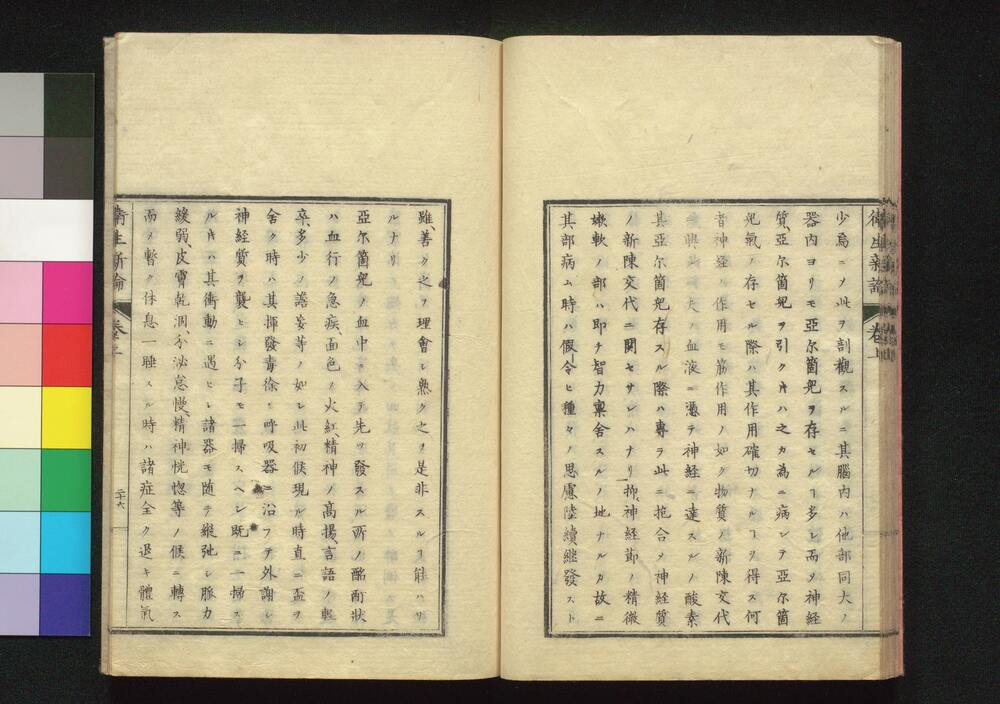 衛生新論 卷上
少焉ニㄨ此ヲ剖觀スルニ其腦内ハ他部同大ノ
器内ヨリモ亞尓箇兒ヲ存セルヿ多シ而ㄨ神経
質、亞尓箇兒ヲ引クキハ之カ為ニ病シテ亞尓箇
兒氣ノ存セル際ハ其作用確切ナルヿヲ得ス何
者神経ノ作用モ筋作用ノ如ク物質ノ新陳交代
ノ血液ニ憑テ神経ニ達スルノ酸素
其亞尓箇兒存スル際ハ專ラ此ニ抱合ㄨ神経質
ノ新陳交代ニ関セサレハナリ抑、神経節ノ精微
嫩軟ノ部ハ即チ智力稟舎スルノ地ナルカ故ニ
其部病ム時ハ假令ヒ種々ノ思慮陸續、継發スト
雖、善ク之ヲ理會シ熟ク之ヲ是非スルヿ能ハサ
ルナリ
亞尓箇兒ノ血中ニ入テ先ツ發スル所ノ酩酊状
ハ血行ノ急疾、面色ノ火紅、精神ノ髙揚、言語ノ輕
卒、多少ノ譫妄等ノ如シ此初候現ル時直ニ盃ヲ
舎ク時ハ其揮發毒徐々呼吸器ニ沿フテ外謝シ
神経質ヲ襲ヒシ分子モ一掃スヘシ既ニ一掃ス
ルキハ其衝動ニ遇ヒシ諸器モ随テ縦弛シ脈力
緩弱、皮膚乾涸、分泌怠慢、精神恍惚等ノ候ニ轉ス
而ㄨ暫ク休息一睡スル時ハ諸症全ク退キ體氣
衛生新論 卷之上
二十六